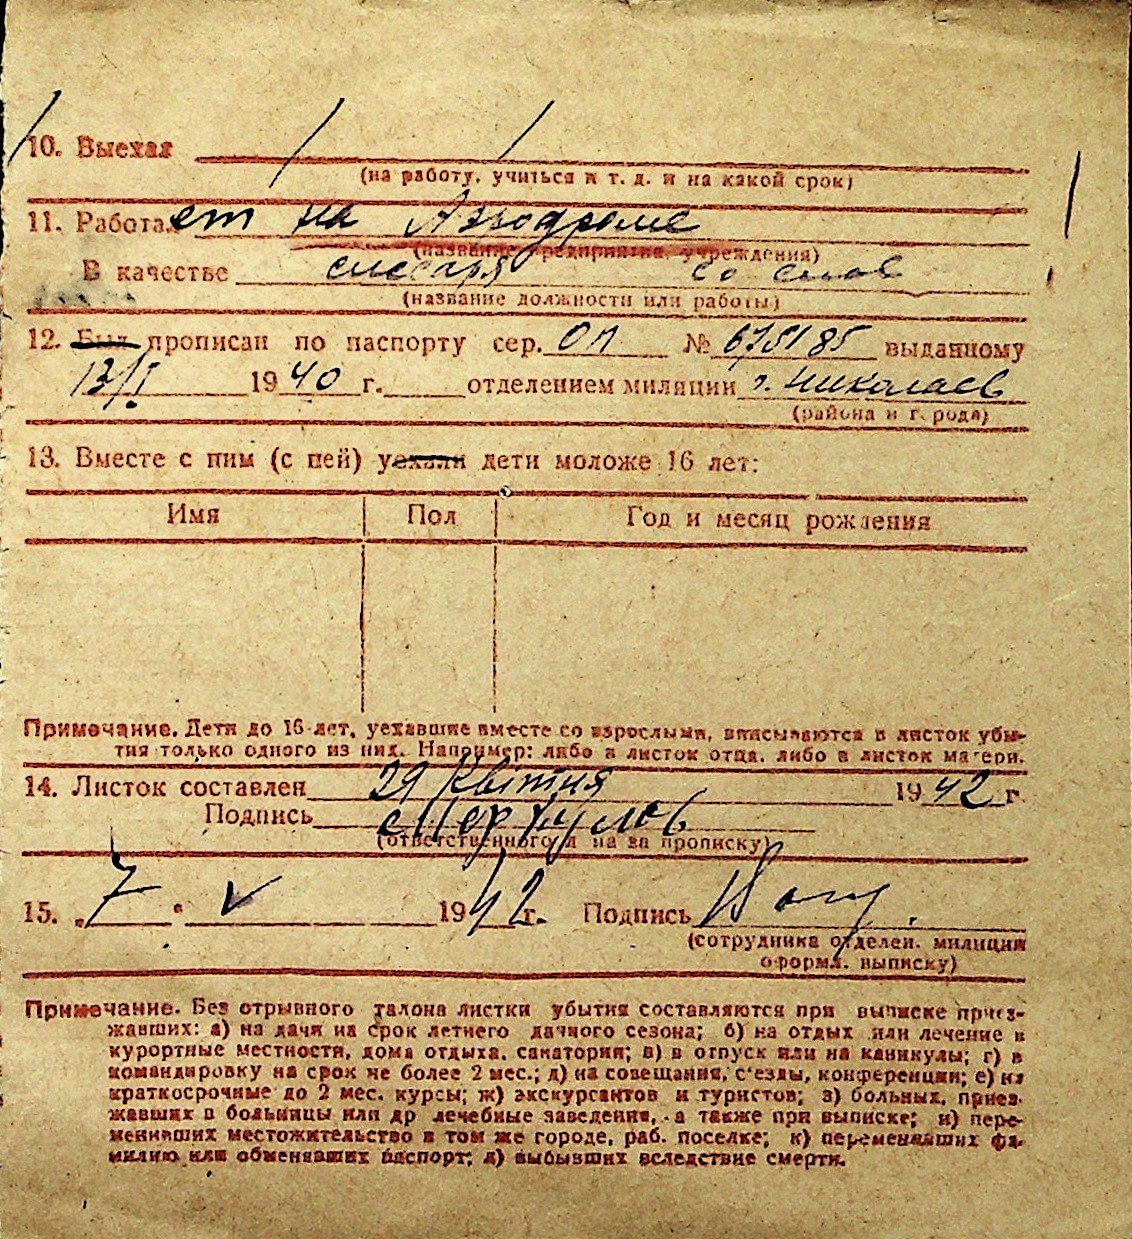 10. Выехал
(на работу, учиться и т. д. и на какой срок)
11. Работает на Аэродроме
(название предприятия, учреждения)
В качестве слесаря со слов
(название должности или работы)
12. Был прописан по паспорту сер. ОП № 675185 выданному
13/I 1940 г. отделением милиции г. Николаев
(района и города)
13. Вместе с ним (с ней) уехали дети моложе 16 лет:
Имя Пол Год и месяц рождения
Примечание. Дети до 16 лет, уехавшие вместе со взрослыми, вписываются в листок убы-
тия только одного из них. Например: либо в листок отца, либо в листок матери.
14. Листок составлен 29 Квітня 1942 г.
Подпись
(ответственного л на за прописку)
15. „7" V 1942 г. Подпись
(сотрудника отделен. милиции
оформл. выписку)
Примечание. Без отрывного талона листки убытия составляются при выписке приез-
жавших: а) на дачи на срок летнего дачного сезона; б) на отдых или лечение в
курортные местности, дома отдыха, санатории; в) в отпуск или на каникулы; г) в
командировку на срок не более 2 мес.; д) на совещания, с'езды, конференции; е) на
краткосрочные до 2 мес. курсы; ж) экскурсантов и туристов; з) больных, приез-
жавших в больницы или др лечебные заведения, а также при выписке; и) пере-
менивших местожительство в том же городе, раб. поселке; к) переменивших фа-
милию или обменявших паспорт; л) выбывших вследствие смерти.